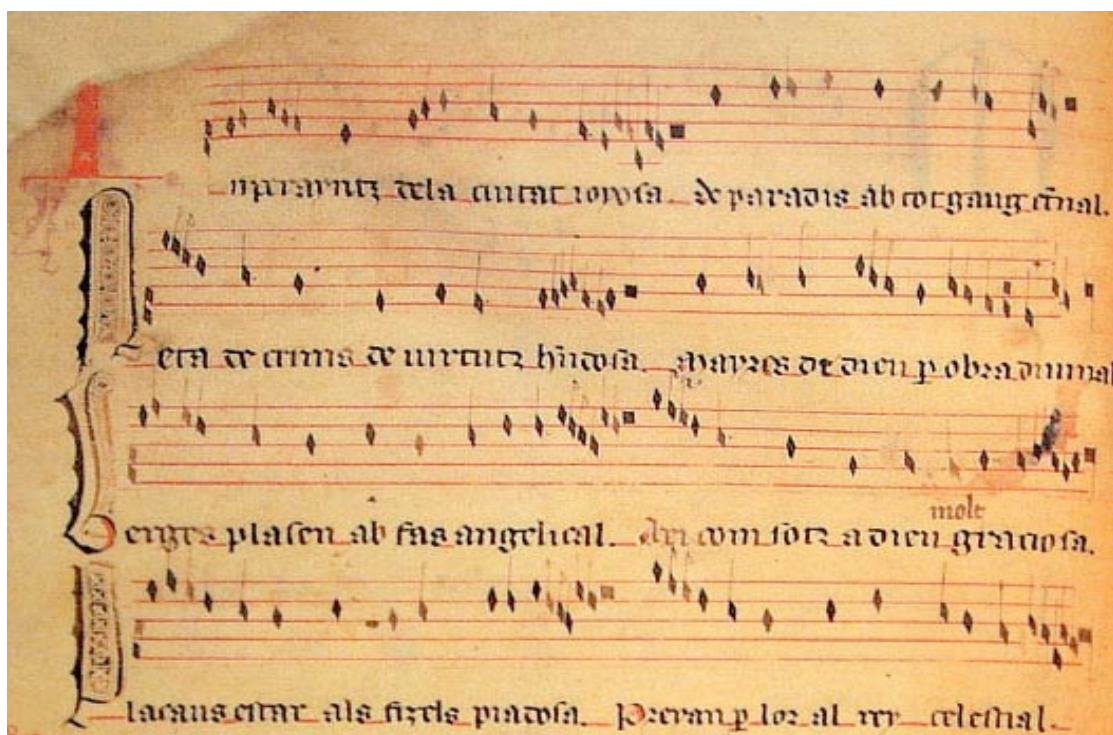 Inperayritz dela ciutat ioyosa. de paradis ab tot gaug
Neta de crims de uirtutz habitdosa. Mayres de dieu p obra diuinal
Uerges plasen ab fas angelical. Axi com sotz a dieu graciosa.
molt
Placaus estar als fizels piadosa. Preyan p lor al rey celestial.